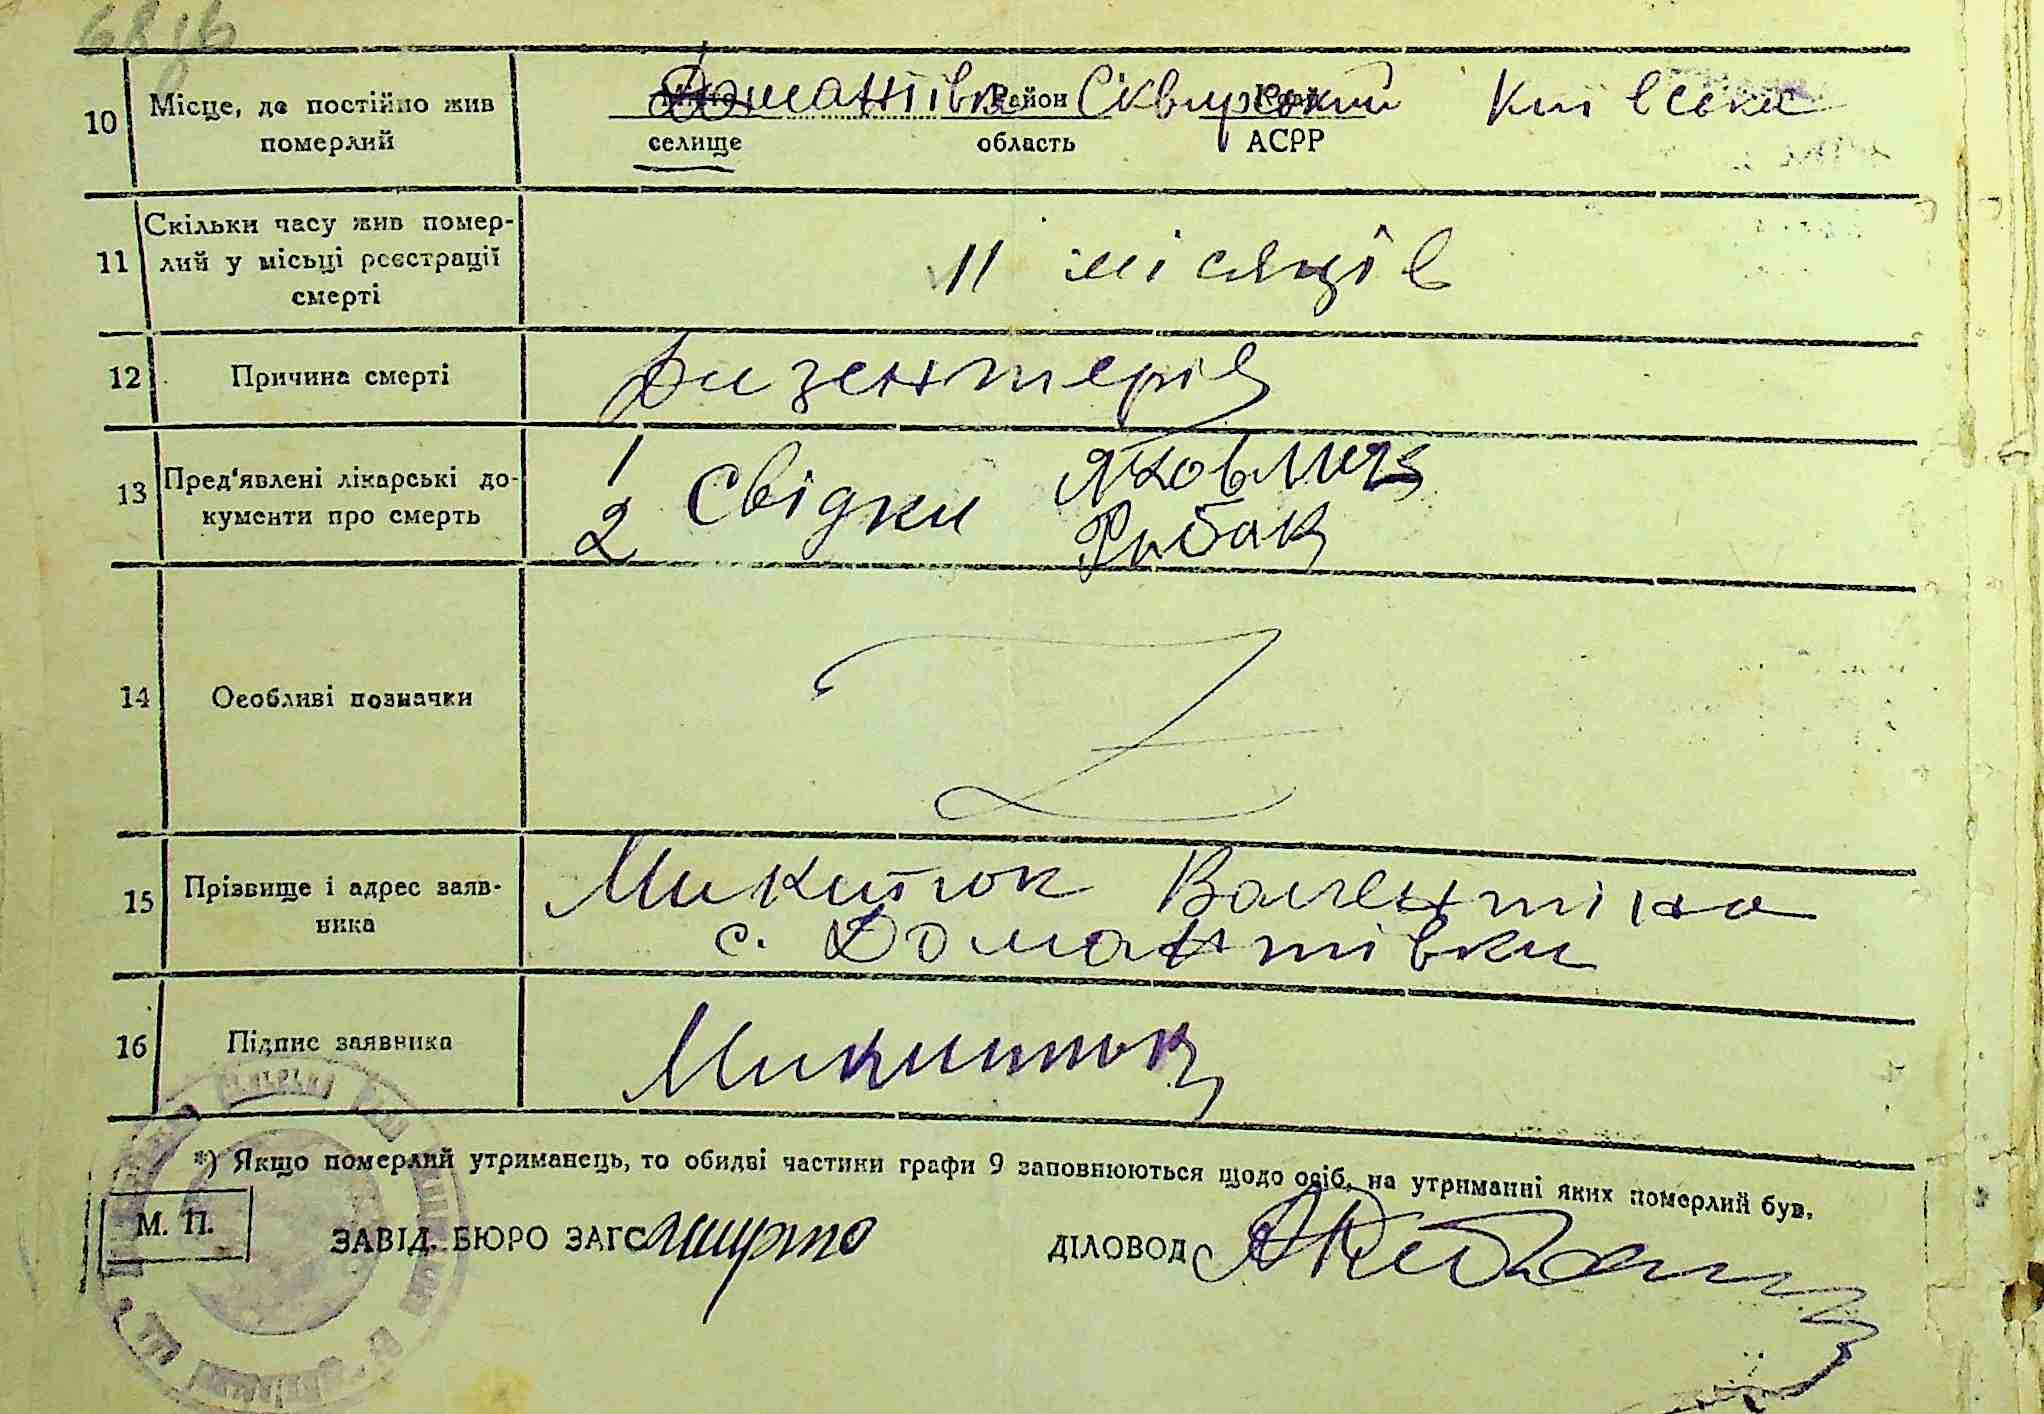 10 Місце, де постійно жив Домантівка Район Сквирський Київська
померлий селище область АСРР
Скільки часу жив помер-
11 лий у місьці реєстрації 11 місяців
смерті
12 Причина смерті Дизентерія
1 Яковлич
13 Пред'явлені лікарські до- Свідки
кументи про смерть 2 Рибак
14 Особливі позначки
15 Прізвище і адрес заяв- Микитюк Валентіна
вика с. Домантівки
16 Підпис заявника Микитюк
*) Якщо померлий утриманець, то обидві частини графи 9 заповнюються щодо осіб, на утриманні яких померлий був.
М. П.
ЗАВІД. БЮРО ЗАГС ДІЛОВОД